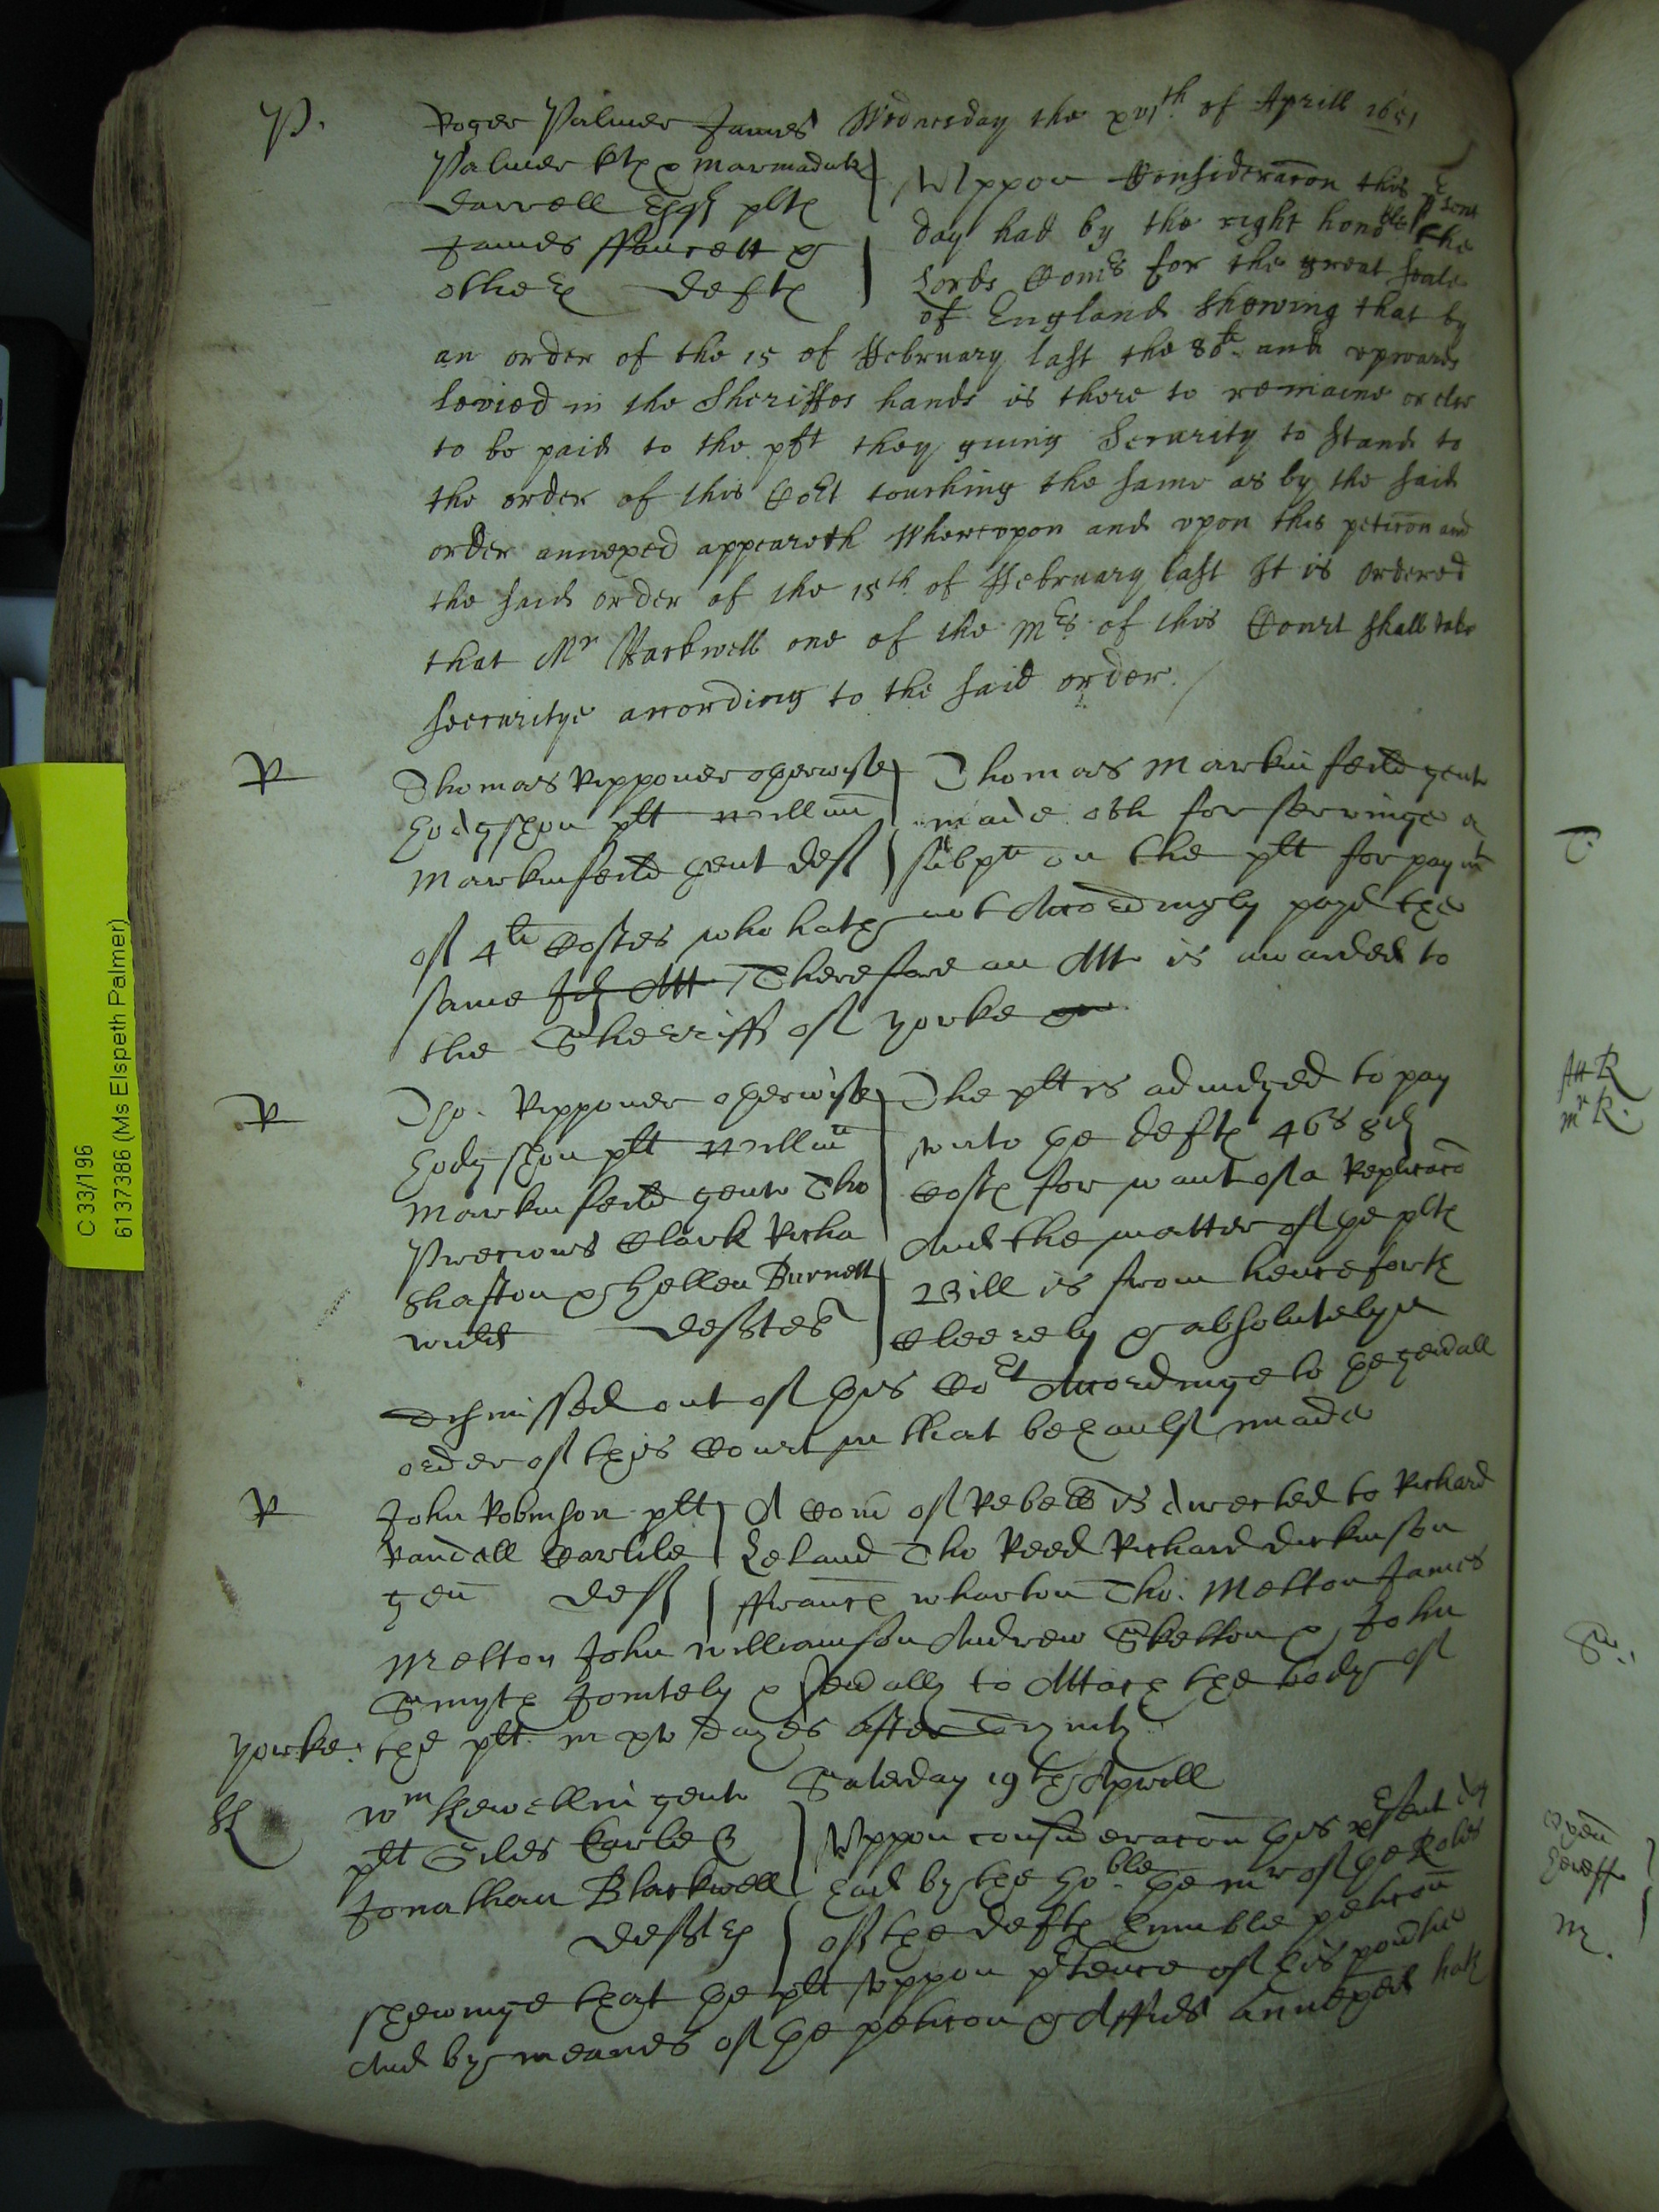 P.
Roger Palmer James Wednesday the xvith of Aprill 1651
Palmer & Marmaduke
Darrell Esqs plts
James ffawcett &
others Defts
Vppon Consideracon this psent
day had by the right honoble the
Lords Comrs for the great Seale
of England shewing that by
an order of the 15 of ffebruary last the 80li and vpwards
levied in the Sheriffes hands is there to remaine or else
to be paid to the plt they giuing Security to stand to
the order of this Cort touching the same as by the said
order annexed appeareth Wherevpon and vpon this peticon and
the said order of the 15th of ffebruary last It is ordered
that Mr one of the Mrs of this Court shall take
securitye according to the said order.
R
Thomas Rippener otherwise
Hodgshon plt Willm
Markinfeild gent deft
Thomas Markinfeild gent
made oth for servinge a
subpa on the plt for paymt
of 4li Costes who hath not Accordingly payd the
same Therefore an Att is awarded to
the Sherriff of Yorke
R
Tho. Rippener otherwise
Hodgshon plt Willm
Markinfeild gent Tho
Precious Clark Richa
Shafton & Hellen Burnett
widd defttes
The plt is adiudged to pay
vnto the defts 46s 8d
Costs for want of a Replicaco
And the matter of the plts
Bill is from henceforth
Cleerely & absolutely
dismissed out of this Cort Accordinge to the genrall
order of this Court in that behaulf made
R
John Robinson plt
Randall Carlile
gen deft
A Com of Rebell is directed to Richard
Leland Tho Reed Richard Dickinson
ffrancs Wharton Tho. Melton James
Melton John Williamson Andrew Skelton & John
Smyth Jointely & sevally to Attach the body of
Yorke. the plt in xv dayes after Trinity
Sk
Wm Skewelling gent Saterday 19th Aprill
plt Giles Earle &
Jonathan Blackwell
deftes
Vppon consideracon this psent day
had by the hoble the Mr of the Roles
of the defts humble peticon
shewinge that the plt vppon ptence of his povtie
And by meanes of the peticon & Affid annexed hath
C 33/196
61373386 (Ms Elspeth Palmer)
Att R
Mr R.